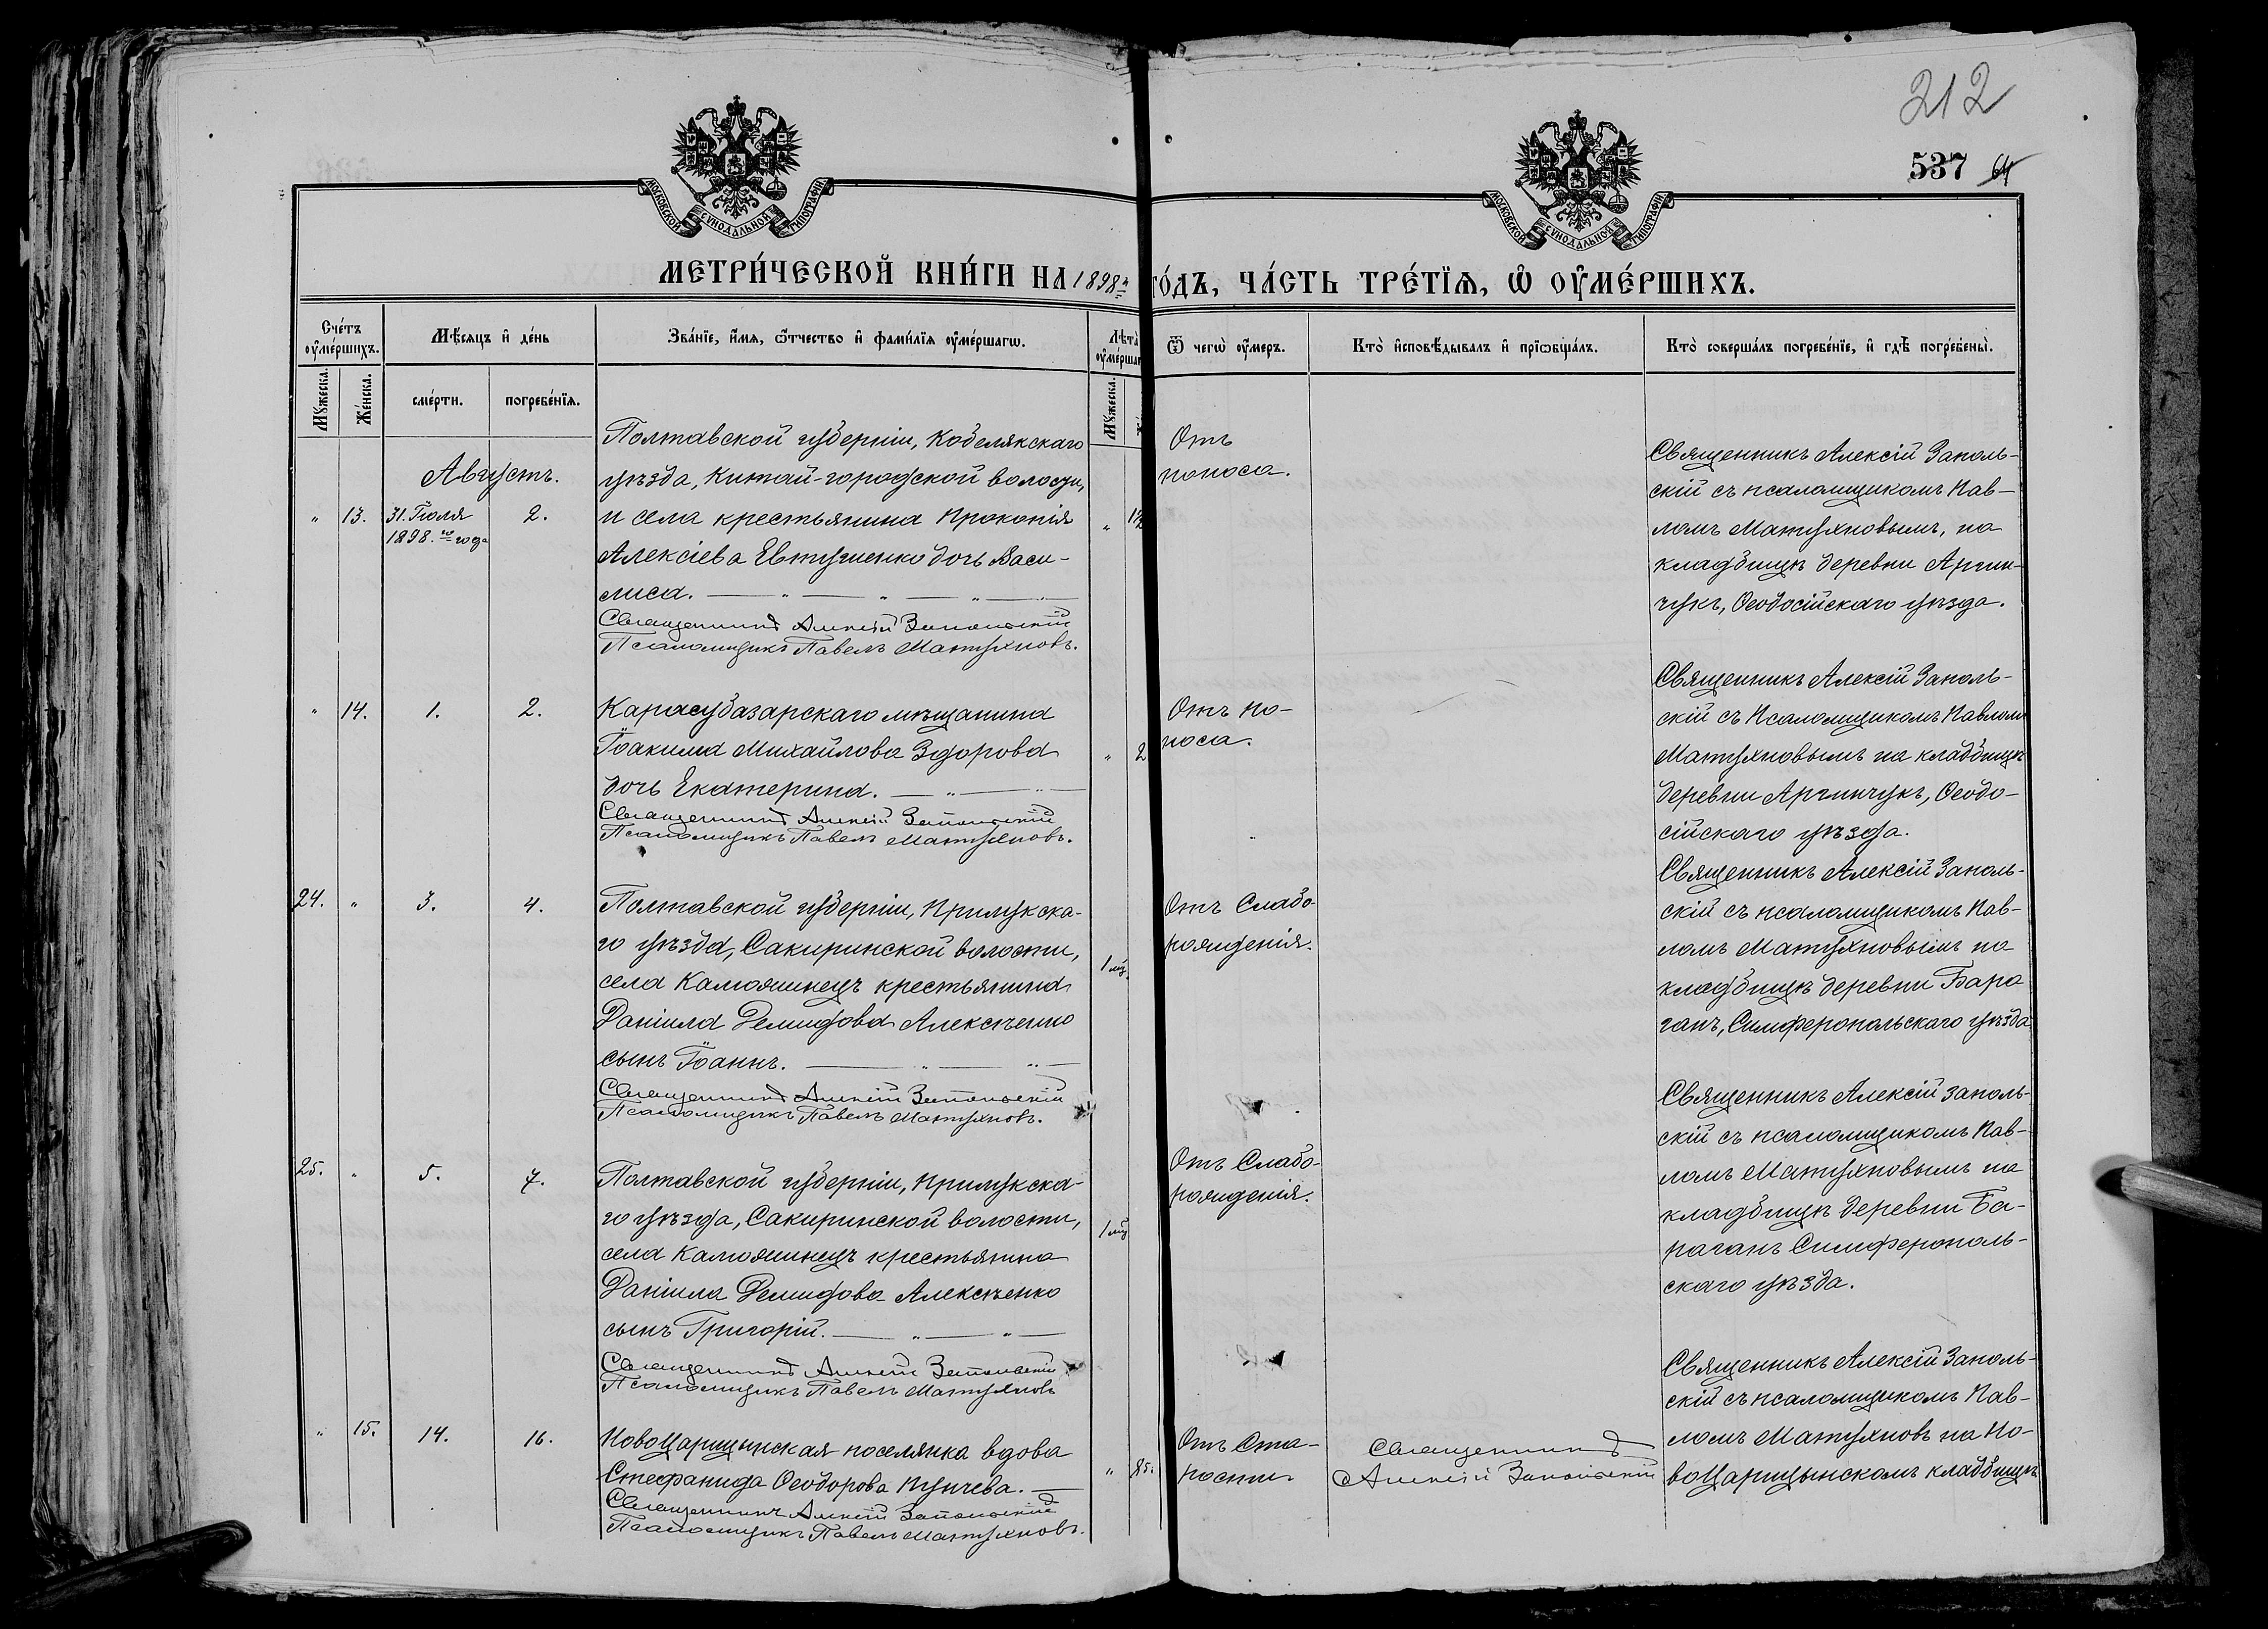 212
537 64
МОСКОВСКОЙ СУНОДАЛЬНОЙ ТИПОГРАФІИ
МОСКОВСКОЙ СУНОДАЛЬНОЙ ТИПОГРАФІИ
МЕТРИ́ЧЕСКОЙ КНИ́ГИ НА 1898й ГО́ДЪ, ЧА́СТЬ ТРЕ́ТЇѦ, Ѡ҆ ОУ҆МЕ́РШИХЪ.
Сче́тъ оу҆ме́ршихъ.
Мѣ́сяцъ и҆ де́нь
Зва́нїе, и҆́мѧ, ѻ҆́тчество и҆ фами́лїѧ оу҆ме́ршагѡ.
Лѣта̀ оу҆ме́рша
Ѿ чегѡ̀ оу҆́меръ.
Кто̀ и҆сповѣ́дывалъ и҆ прїѡбща́лъ.
Кто̀ соверша́лъ погребе́нїе, и҆ гдѣ̀ погребены̀.
Мꙋ́жеска.
Же́нска.
сме́рти.
погребе́нїѧ.
Мꙋ́жеска.
Августъ.
" 13.
31. Іюля
1898.го года
2.
Полтавской губерніи, Кобелякскаго
уѣзда, Китай-городской волости,
и села крестьянина Прокопія
Алексіева Евтушенко дочь Васи-
лиса.
Священникъ Алексій Запольскій
Псаломщикъ Павелъ Матухновъ.
"
Отъ
поноса.
Священникъ Алексій Заполь-
скій съ псаломщикомъ Пав-
ломъ Матухновымъ, на
кладбищѣ деревни Аргин-
чукъ, Ѳеодосійскаго уѣзда.
" 14.
1.
2.
Карасубазарскаго мѣщанина
Іоакима Михайлова Здорова
дочь Екатерина.
Священникъ Алексій Запольскій
Псаломщикъ Павелъ Матухновъ.
" 2
Отъ по-
носа.
Священникъ Алексій Заполь-
скій съ Псаломщикомъ Павломъ
Матухновымъ на кладбищѣ
деревни Аргинчукъ, Ѳеодо-
сійскаго уѣзда.
24. "
3.
4.
Полтавской губерніи, Прилукска-
го уѣзда, Сакиринской волости,
села Калюжинецъ крестьянина
Даніила Демидова Алексѣенко
сынъ Іоаннъ.
Священникъ Алексій Запольскій
Псаломщикъ Павелъ Матухновъ.
1 мц.
Отъ Слабо-
рожденія.
Священникъ Алексій Заполь-
скій съ псаломщикомъ Пав-
ломъ Матухновымъ на
кладбищѣ деревни Бара
ганъ, Симферопольскаго уѣзда
25. "
5.
7.
Полтавской губерніи, Прилукска-
го уѣзда, Сакиринской волости,
села Калюжинецъ крестьянина
Даніила Демидова Алексѣенко
сынъ Григорій.
Священникъ Алексій Запольскій
Псаломщикъ Павелъ Матухновъ
1 мц
Отъ Слабо-
рожденія.
Священникъ Алексій Заполь-
скій съ псаломщикомъ Пав-
ломъ Матухновымъ на
кладбищѣ деревни Ба-
раганъ Симферополь-
скаго уѣзда.
" 15.
14.
16.
Новоцарицынская поселянка вдова
Стефанида Ѳеодорова
Священникъ Алексій Запольскій
Псаломщикъ Павелъ Матухновъ.
" 85.
Отъ Ста-
рости
Священникъ
Алексій Запольскій
Священникъ Алексій Заполь-
скій съ псаломщикомъ Пав-
ломъ Матухновъ на Но-
воЦарицынскомъ кладбищѣ